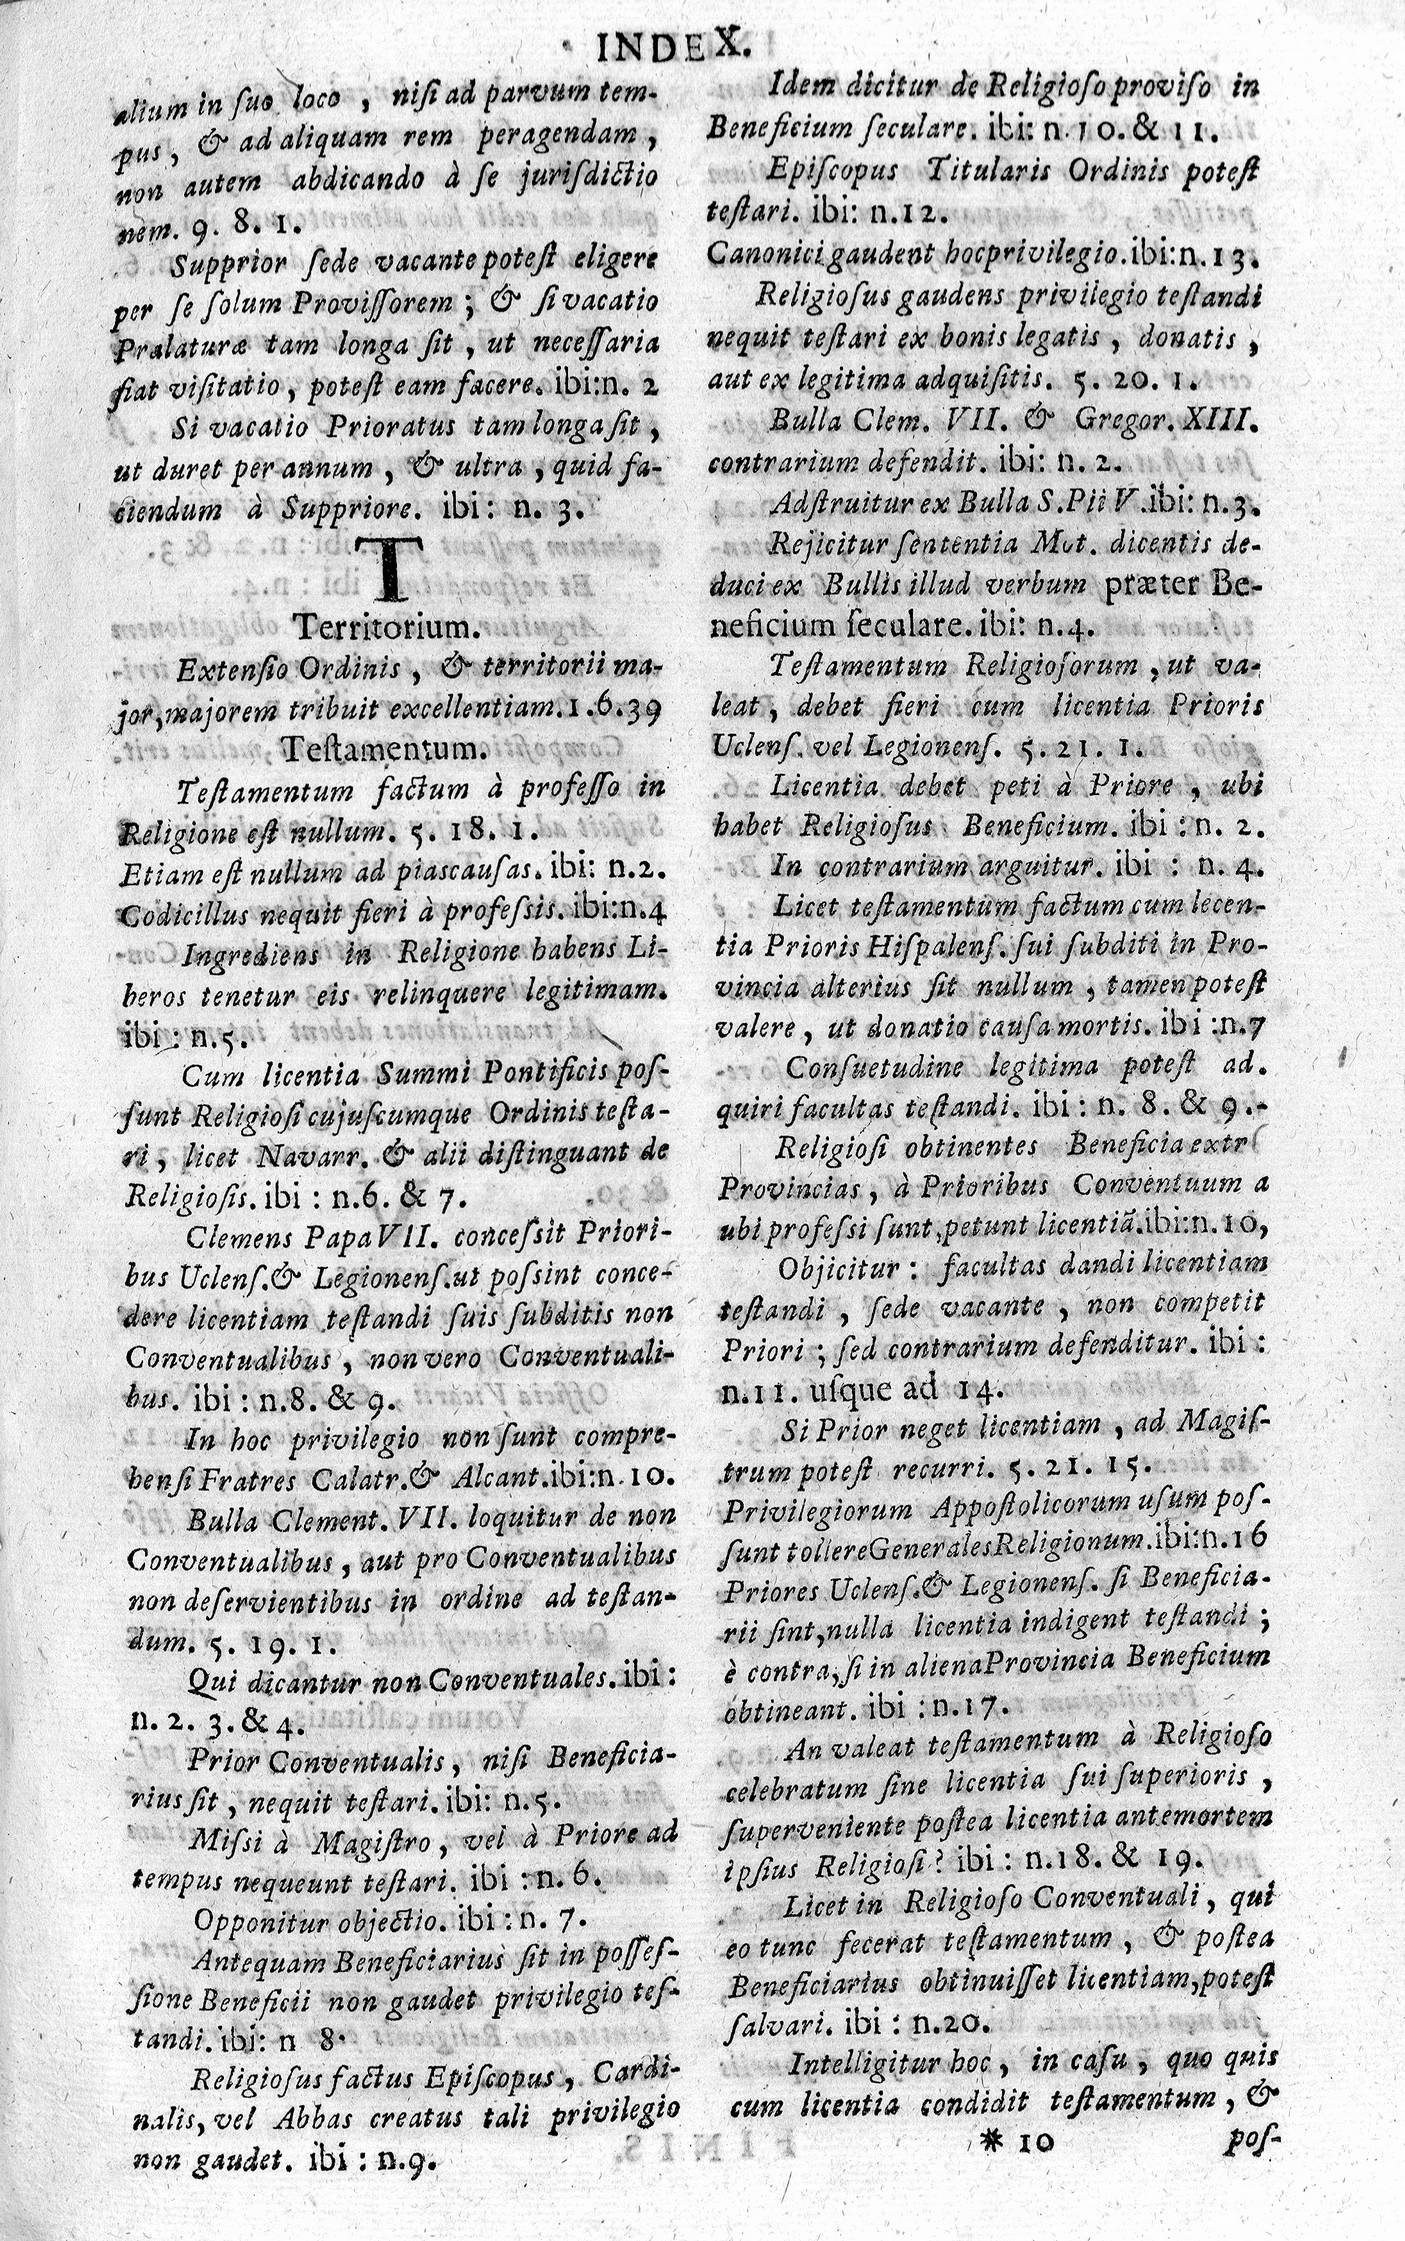 INDEX.
alium in suo loco , nisi ad parvum tem-
pus, & ad aliquam rem peragendam,
non autem abdicando à se jurisdictio
nem. 9. 8. 1.
Supprior sede vacante potest eligere
per se solum Provissorem; & si vacatio
Prælaturæ tam longa sit, ut necessaria
fiat visitatio, potest eam facere. ibi:n. 2
Si vacatio Prioratus tam longa sit,
ut duret per annum, & ultra, quid fa-
ciendum à Suppriore. ibi: n. 3.
T
Territorium.
Extensio Ordinis, & territorii ma-
jor, majorem tribuit excellentiam. 1.6.39
Testamentum.
Testamentum factum à professo in
Religione est nullum. 5. 18. 1.
Etiam est nullum ad pias causas. ibi: n.2.
Codicillus nequit fieri à professis. ibi:n.4
Ingrediens in Religione habens Li-
beros tenetur eis relinquere legitimam.
ibi: n.5.
Cum licentia Summi Pontificis pos-
sunt Religiosi cujuscumque Ordinis testa-
ri, licet Navarr. & alii distinguant de
Religiosis. ibi: n.6. & 7.
Clemens Papa VII. concessit Priori-
bus Uclens. & Legionens. ut possint conce-
dere licentiam testandi suis subditis non
Conventualibus, non vero Conventuali-
bus. ibi: n.8. & 9.
In hoc privilegio non sunt compre-
hensi Fratres Calatr. & Alcant. ibi:n.10.
Bulla Clement. VII. loquitur de non
Conventualibus, aut pro Conventualibus
non deservientibus in ordine ad testan-
dum. 5. 19. 1.
Qui dicantur non Conventuales. ibi:
n. 2. 3. & 4.
Prior Conventualis, nisi Beneficia-
rius sit, nequit testari. ibi: n.5.
Missi à Magistro, vel à Priore ad
tempus nequeunt testari. ibi: n. 6.
Opponitur objectio. ibi: n. 7.
Antequam Beneficiarius sit in posses-
sione Beneficii non gaudet privilegio tes-
tandi. ibi: n 8.
Religiosus factus Episcopus, Cardi-
nalis, vel Abbas creatus tali privilegio
non gaudet. ibi: n.9.
Idem dicitur de Religioso proviso in
Beneficium seculare. ibi: n.10. & 11.
Episcopus Titularis Ordinis potest
testari. ibi: n.12.
Canonici gaudent hoc privilegio. ibi:n.13.
Religiosus gaudens privilegio testandi
nequit testari ex bonis legatis, donatis,
aut ex legitima adquisitis. 5. 20. 1.
Bulla Clem. VII. & Gregor. XIII.
contrarium defendit. ibi: n. 2.
Adstruitur ex Bulla S. Pii V. ibi: n.3.
Rejicitur sententia Mot. dicentis de-
duci ex Bullis illud verbum præter Be-
neficium seculare. ibi: n.4.
Testamentum Religiosorum, ut va-
leat, debet fieri cum licentia Prioris
Uclens. vel Legionens. 5. 21. 1.
Licentia debet peti à Priore, ubi
habet Religiosus Beneficium. ibi: n. 2.
In contrarium arguitur. ibi: n. 4.
Licet testamentum factum cum lecen-
tia Prioris Hispalens. sui subditi in Pro-
vincia alterius sit nullum, tamen potest
valere, ut donatio causa mortis. ibi:n.7
Consuetudine legitima potest ad.
quiri facultas testandi. ibi: n. 8. & 9.-
Religiosi obtinentes Beneficia extr
Provincias, à Prioribus Conventuum a
ubi professi sunt, petunt licentiã. ibi:n.10,
Objicitur: facultas dandi licentiam
testandi, sede vacante, non competit
Priori; sed contrarium defenditur. ibi:
n.11. usque ad 14.
Si Prior neget licentiam, ad Magis-
trum potest recurri. 5. 21. 15.
Privilegiorum Appostolicorum usum pos-
sunt tollere Generales Religionum. ibi:n.16
Priores Uclens. & Legionens. si Beneficia-
rii sint, nulla licentia indigent testandi;
è contra, si in aliena Provincia Beneficium
obtineant. ibi: n.17.
An valeat testamentum à Religioso
celebratum sine licentia sui superioris,
superveniente postea licentia ante mortem
ipsius Religiosi? ibi: n.18. & 19.
Licet in Religioso Conventuali, qui
eo tunc fecerat testamentum, & postea
Beneficiarius obtinuisset licentiam, potest
salvari. ibi: n.20.
Intelligitur hoc, in casu, quo quis
cum licentia condidit testamentum, &
* 10 pos-